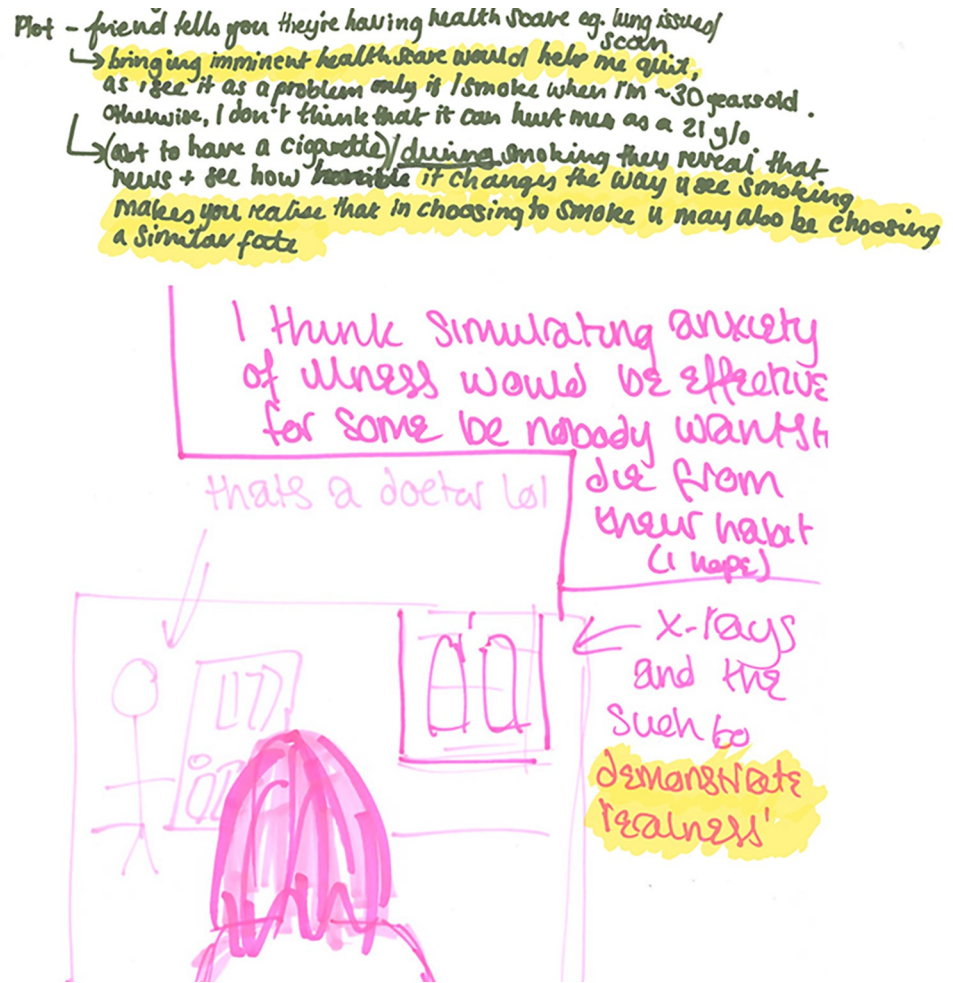 Plot - friend tells you they're having health scare eg. lung issues/
scan
↳ bringing imminent health scare would help me quit,
as i see it as a problem only if I smoke when I'm ~30 years old.
otherwise, I don't think that it can hurt me as a 21 y/o
↳ (out to have a cigarette)/during smoking they reveal that
news + see how horrible it changes the way u see smoking
makes you realise that in choosing to smoke u may also be choosing
a similar fate
I think simulating anxiety
of illness would be effective
for some bc nobody wants t
die from
their habit
(I hope)
thats a doctor lol
x-rays
and the
such to
demonstrate
'realness'